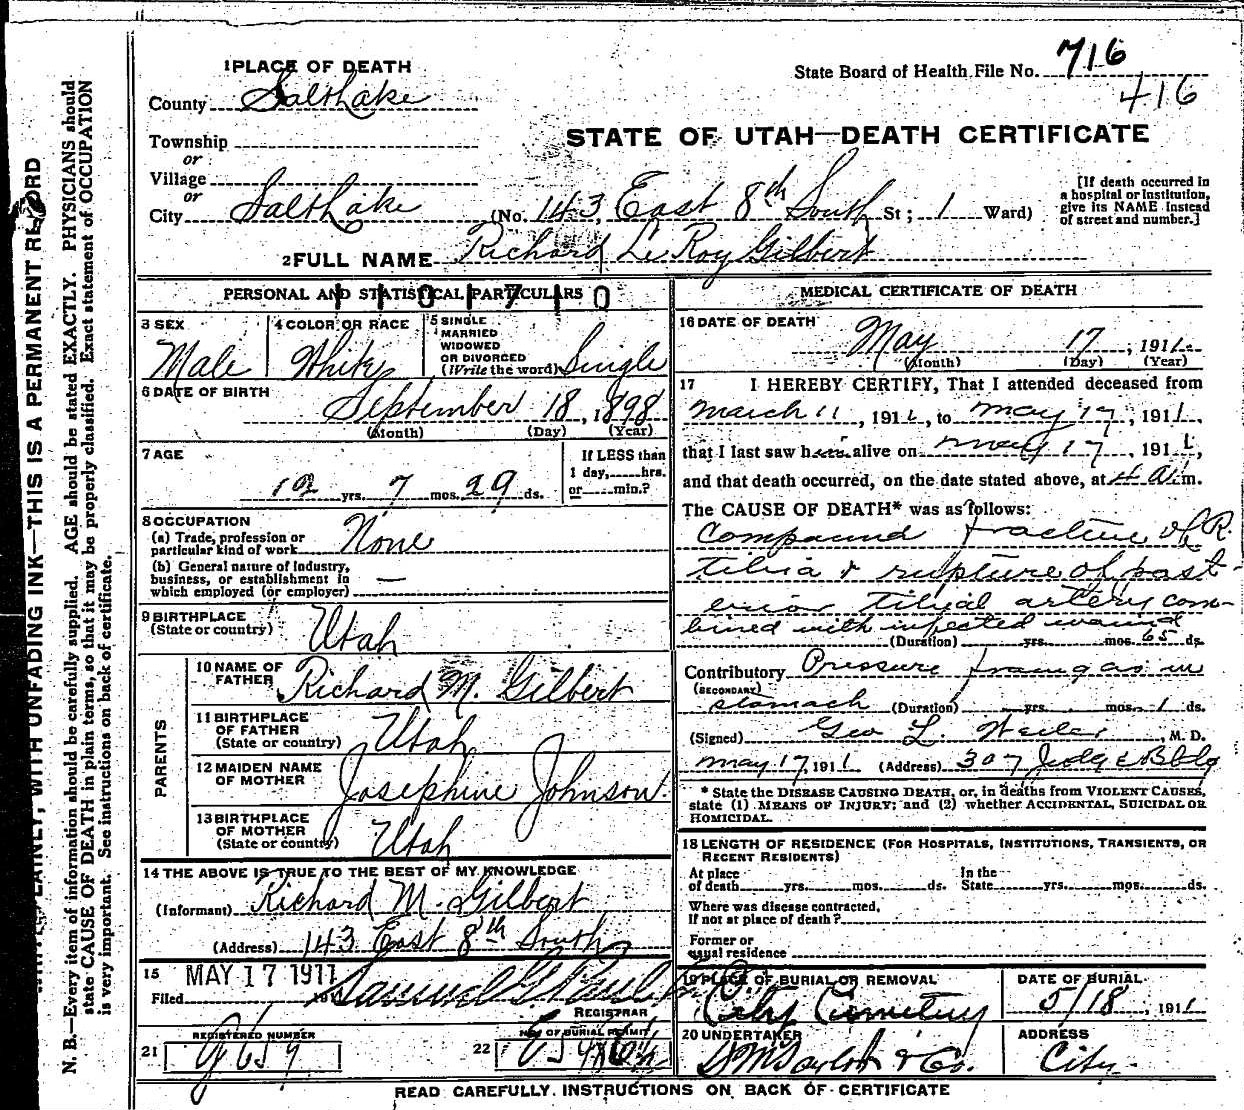 WRITE PLAINLY, WITH UNFADING INK—THIS IS A PERMANENT RECORD
N. B.—Every item of information should be carefully supplied. AGE should be stated EXACTLY. PHYSICIANS should
state CAUSE OF DEATH in plain terms, so that it may be properly classified. Exact statement of OCCUPATION
is very important. See instructions on back of certificate.
1 PLACE OF DEATH
State Board of Health File No. 716
416
County Salt Lake
STATE OF UTAH—DEATH CERTIFICATE
Township
or
Village
or
City Salt Lake (No. 143 East 8th South St; 1 Ward)
[If death occurred in
a hospital or institution,
give its NAME instead
of street and number.]
2 FULL NAME Richard Le Roy Gilbert
PERSONAL AND STATISTICAL PARTICULARS
110710
3 SEX Male
4 COLOR OR RACE White
5 SINGLE
MARRIED
WIDOWED
OR DIVORCED
(Write the word) Single
6 DATE OF BIRTH
September 18, 1898
(Month) (Day) (Year)
7 AGE
12 yrs. 7 mos. 29 ds.
If LESS than
1 day, hrs.
or min.?
8 OCCUPATION
(a) Trade, profession or
particular kind of work None
(b) General nature of Industry,
business, or establishment in
which employed (or employer) —
9 BIRTHPLACE
(State or country) Utah
PARENTS
10 NAME OF
FATHER Richard M. Gilbert
11 BIRTHPLACE
OF FATHER
(State or country) Utah
12 MAIDEN NAME
OF MOTHER Josephine Johnson
13 BIRTHPLACE
OF MOTHER
(State or country) Utah
14 THE ABOVE IS TRUE TO THE BEST OF MY KNOWLEDGE
(Informant) Richard M. Gilbert
(Address) 143 East 8th South
15
Filed MAY 17 1911 Samuel G. Paul
REGISTRAR
REGISTERED NUMBER
21
NO. OF BURIAL PERMIT
22
MEDICAL CERTIFICATE OF DEATH
16 DATE OF DEATH
May 17, 1911
(Month) (Day) (Year)
17 I HEREBY CERTIFY, That I attended deceased from
March 11, 1911, to May 17, 1911,
that I last saw him alive on May 17, 1911,
and that death occurred, on the date stated above, at m.
The CAUSE OF DEATH* was as follows:
Compound fracture of R.
tibia & rupture of post-
erior tibial artery com-
bined with infected wound
(Duration) yrs. mos. 65 ds.
Contributory Pressure from gas in
(SECONDARY)
stomach (Duration) yrs. mos. 1 ds.
(Signed) Geo L. Weiler, M. D.
May 17, 1911 (Address) 307 Judge Bldg
* State the DISEASE CAUSING DEATH, or, in deaths from VIOLENT CAUSES,
state (1) MEANS OF INJURY; and (2) whether ACCIDENTAL, SUICIDAL OR
HOMICIDAL.
18 LENGTH OF RESIDENCE (FOR HOSPITALS, INSTITUTIONS, TRANSIENTS, OR
RECENT RESIDENTS)
At place
of death yrs. mos. ds.
In the
State yrs. mos. ds.
Where was disease contracted,
If not at place of death?
Former or
usual residence
19 PLACE OF BURIAL OR REMOVAL
City Cemetery
DATE OF BURIAL
5/18, 1911
20 UNDERTAKER
S. M. Taylor & Co.
ADDRESS
City
READ CAREFULLY. INSTRUCTIONS ON BACK OF CERTIFICATE